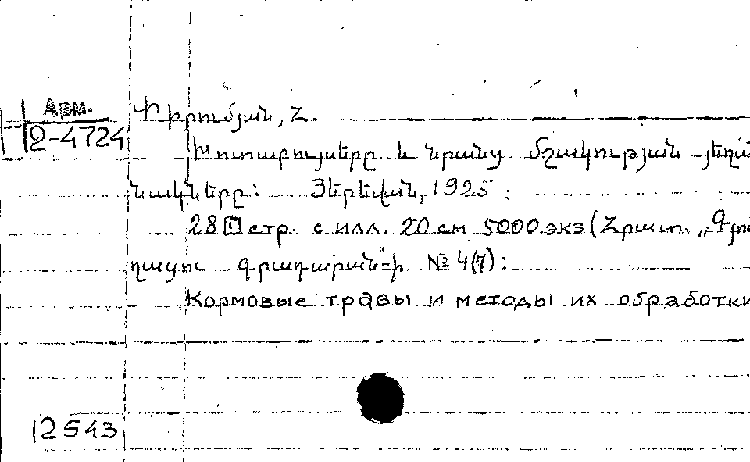 Арм.
2-4724
Պիրումյան, Հ.
Խոտաբույսերը և նրանց մշակության յեղա
նակները: Յերեվան, 1925:
28 стр. с илл. 20 см 5000 экз (Հրատ. „Գյու
ղացու գրադարան"-ի № 4(7):
Кормовые травы и методы их обработки
12543